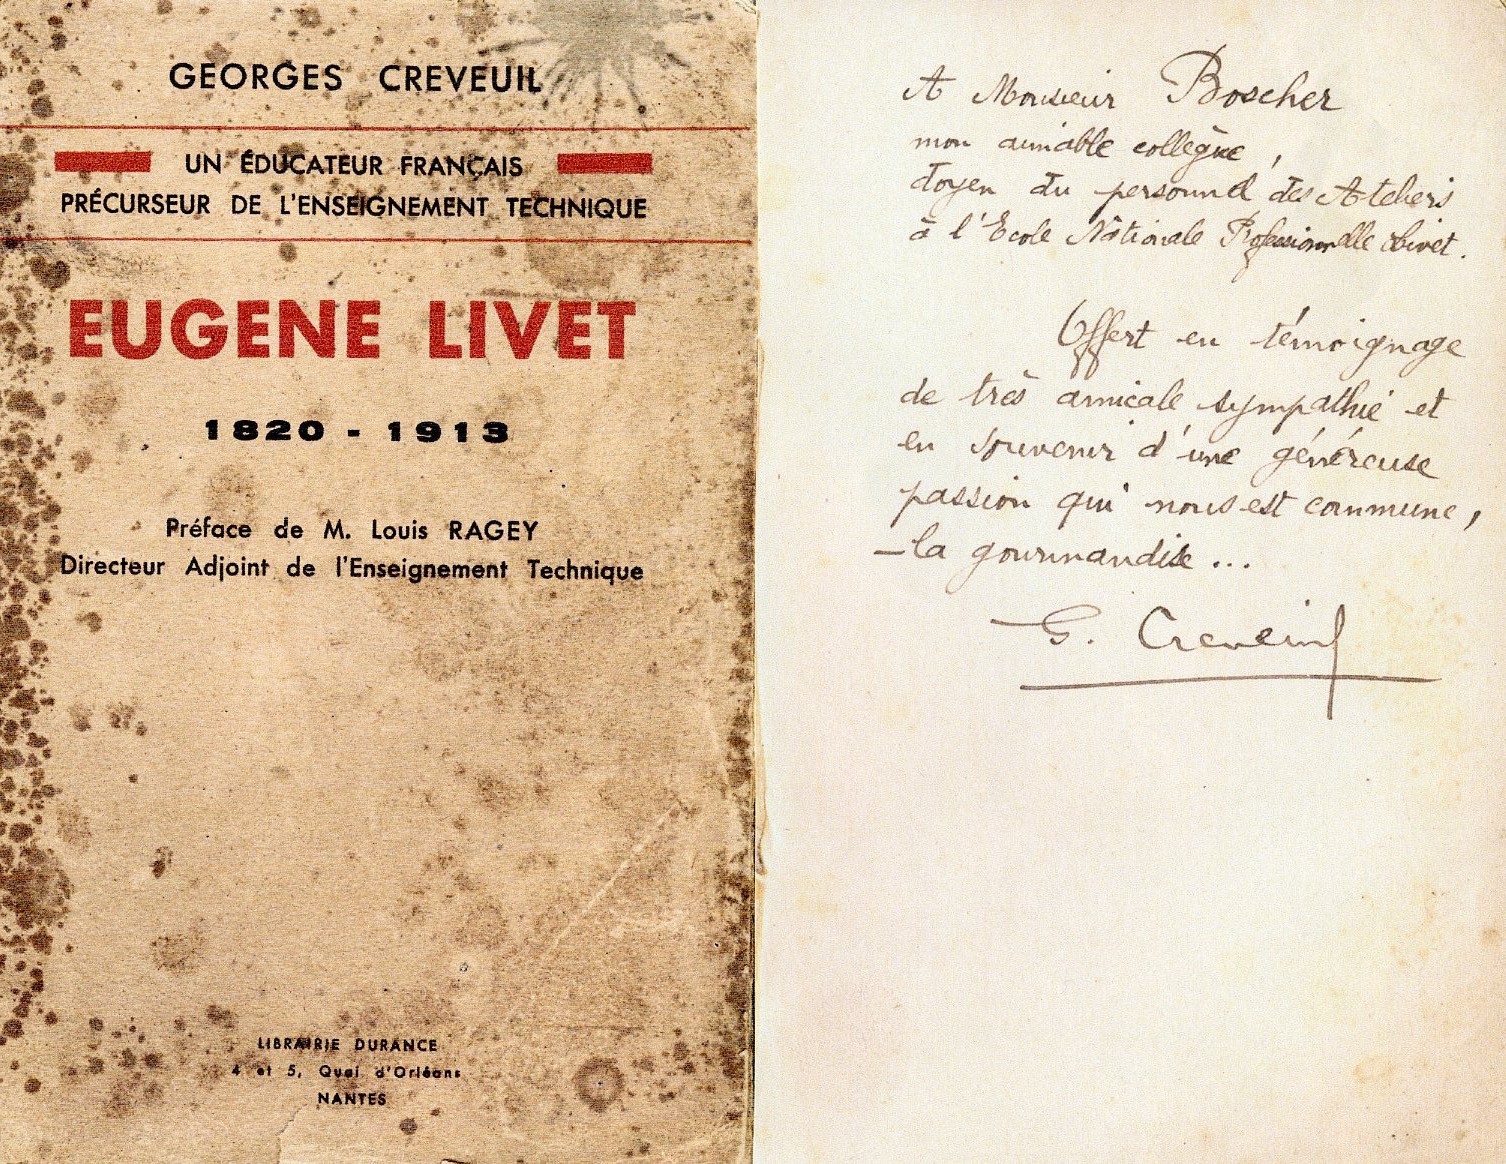 GEORGES CREVEUIL
UN ÉDUCATEUR FRANÇAIS
PRÉCURSEUR DE L'ENSEIGNEMENT TECHNIQUE
EUGENE LIVET
1820 - 1913
Préface de M. Louis RAGEY
Directeur Adjoint de l'Enseignement Technique
LIBRAIRIE DURANCE
4 et 5, Quai d'Orléans
NANTES
A Monsieur Boscher
mon aimable collègue,
doyen du personnel des Ateliers
à l'Ecole Nationale Professionnelle Livet.
Offert en témoignage
de très amicale sympathie et
en souvenir d'une généreuse
passion qui nous est commune,
– la gourmandise...
G. Creveuil